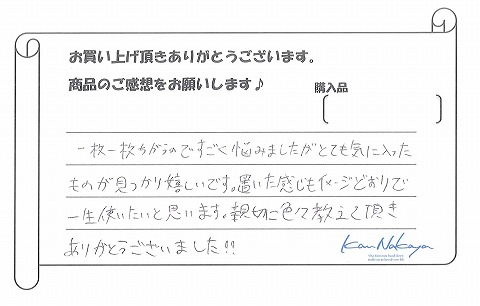 お買い上げ頂きありがとうございます。
商品のご感想をお願いします♪
購入品
一枚一枚ちがうのですごく悩みましたがとても気に入った
ものが見つかり嬉しいです。置いた感じもイメージどおりで
一生使いたいと思います。親切に色々教えて頂き
ありがとうございました!!
Kan Nakaya